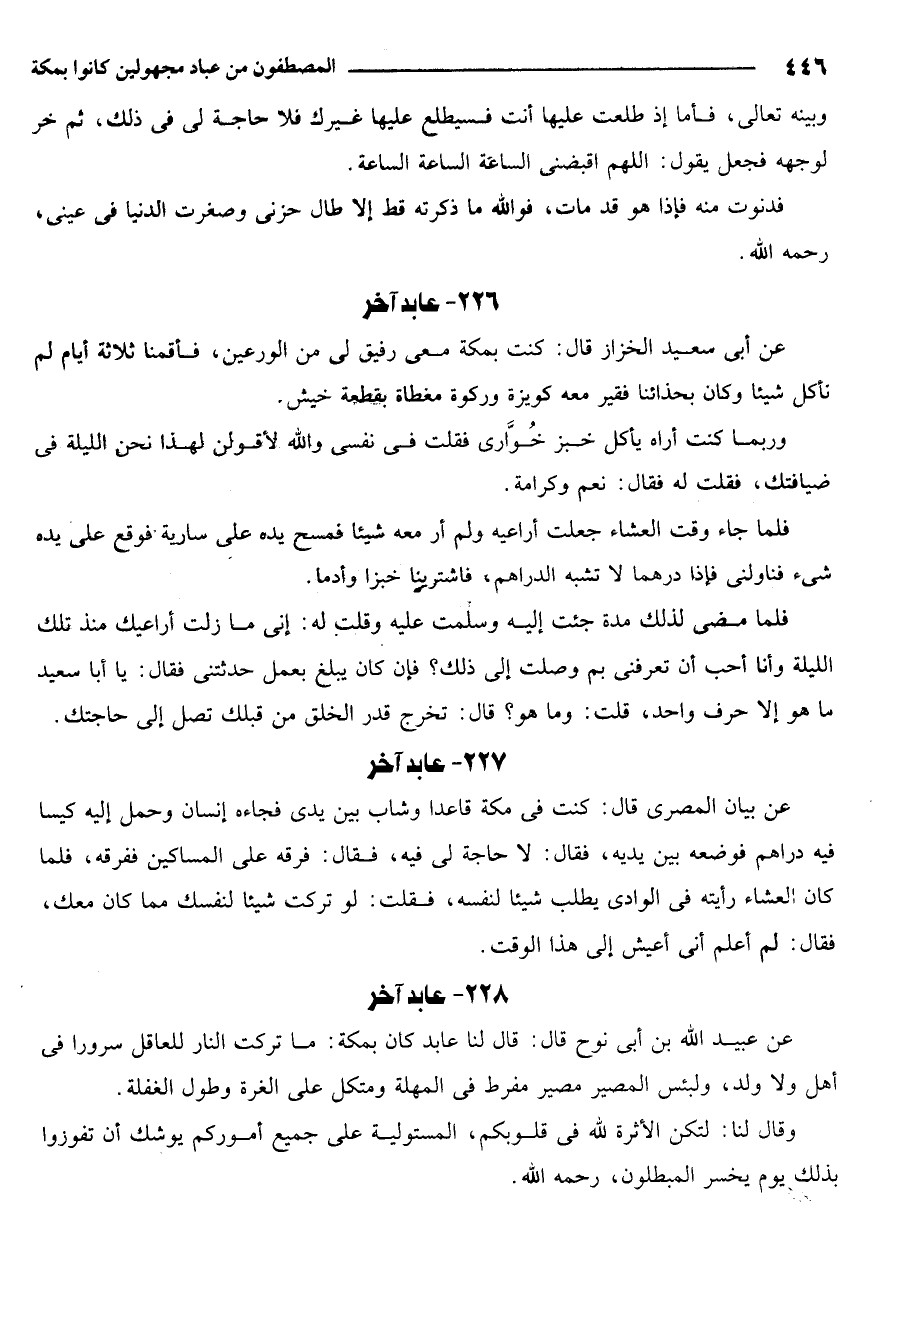 ٤٤٦ المصطفون من عباد مجهولين كانوا بمكة
وبينه تعالى، فأما إذ طلعت عليها أنت فسيطلع عليها غيرك فلا حاجة لى فى ذلك، ثم خر
لوجهه فجعل يقول: اللهم اقبضنى الساعة الساعة الساعة.
فدنوت منه فإذا هو قد مات، فوالله ما ذكرته قط إلا طال حزنى وصغرت الدنيا فى عينى،
رحمه الله.
٢٢٦- عابد آخر
عن أبى سعيد الخزاز قال: كنت بمكة معى رفيق لى من الورعين، فأقمنا ثلاثة أيام لم
نأكل شيئا وكان بحذائنا فقير معه كويزة وركوة مغطاة بقطعة خيش.
وربما كنت أراه يأكل خبز خُوَّارى فقلت فى نفسى والله لأقولن لهذا نحن الليلة فى
ضيافتك، فقلت له فقال: نعم وكرامة.
فلما جاء وقت العشاء جعلت أراعيه ولم أر معه شيئا فمسح يده على سارية فوقع على يده
شىء فناولنى فإذا درهما لا تشبه الدراهم، فاشترينا خبزا وأدما.
فلما مضى لذلك مدة جئت إليه وسلمت عليه وقلت له: إنى ما زلت أراعيك منذ تلك
الليلة وأنا أحب أن تعرفنى بم وصلت إلى ذلك؟ فإن كان يبلغ بعمل حدثتنى فقال: يا أبا سعيد
ما هو إلا حرف واحد، قلت: وما هو؟ قال: تخرج قدر الخلق من قبلك تصل إلى حاجتك.
٢٢٧- عابد آخر
عن بيان المصرى قال: كنت فى مكة قاعدا وشاب بين يدى فجاءه إنسان وحمل إليه كيسا
فيه دراهم فوضعه بين يديه، فقال: لا حاجة لى فيه، فقال: فرقه على المساكين ففرقه، فلما
كان العشاء رأيته فى الوادى يطلب شيئا لنفسه، فقلت: لو تركت شيئا لنفسك مما كان معك،
فقال: لم أعلم أنى أعيش إلى هذا الوقت.
٢٢٨- عابد آخر
عن عبيد الله بن أبى نوح قال: قال لنا عابد كان بمكة: ما تركت النار للعاقل سرورا فى
أهل ولا ولد، ولبئس المصير مصير مفرط فى المهلة ومتكل على الغرة وطول الغفلة.
وقال لنا: لتكن الأثرة لله فى قلوبكم، المستولية على جميع أموركم يوشك أن تفوزوا
بذلك يوم يخسر المبطلون، رحمه الله.